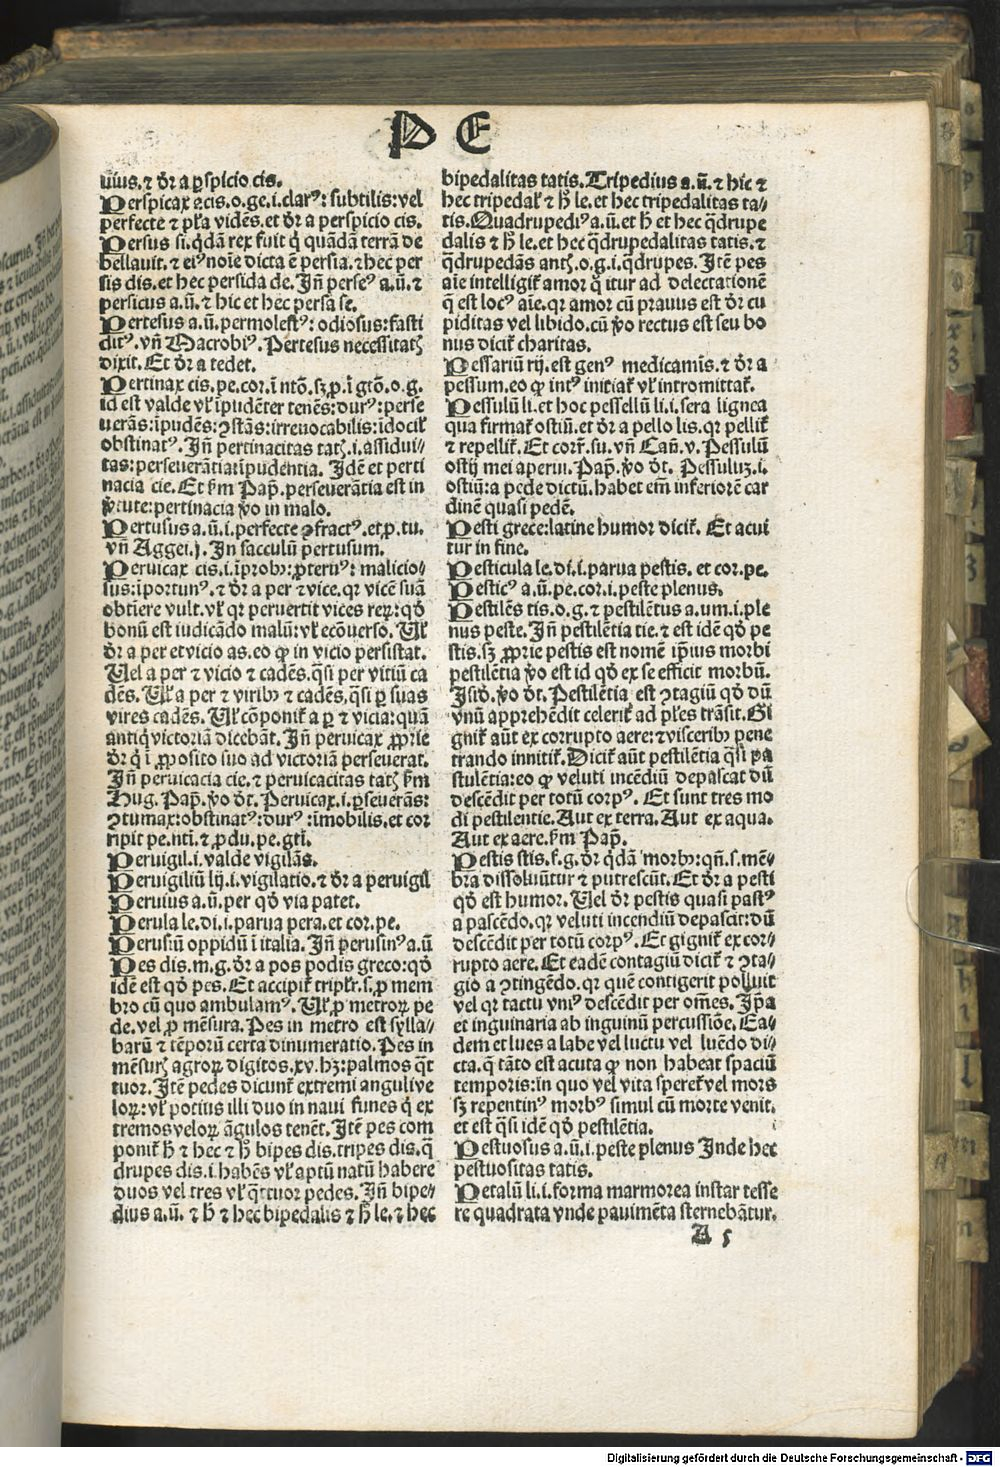 P E
uius. ⁊ dr̄ a ꝑspicio cis.
Perspicax ⁊cis. o. ge. i. clarꝰ: subtilis: vel
perfecte ⁊ pl̄ra vidēs. et dr̄ a perspicio cis.
Persus si. q̄dā rex fuit q̄ quādā terrā de
bellauit. ⁊ eiꝰ noīe dicta ē persia. ⁊ hec per
sis dis. et hec persida de. Jn̄ perseꝰ a. ū. ⁊
persicus a. ū. ⁊ hic et hec persa se.
Pertesus a. ū. permolestꝰ: odiosus: fasti
ditꝰ. vn̄ Macrobiꝰ. Pertesus necessitatꝭ
dixit. Et dr̄ a tedet.
Pertinax cis. pe. cor. ī ntō. sꝫ ꝓ. ī gtō. o. g.
id est valde vl̓ īpudēter tenēs: durꝰ: perse
uerās: īpudēs: ꝯstās: irreuocabilis: īdocil̓
obstinatꝰ. Jn̄ pertinacitas tatꝭ. i. assidui⸗
tas: perseuerātia: īpudentia. Jdē et perti
nacia cie. Et ẜm Pap̄. perseuerātia est in
v̓tute: pertinacia v̓o in malo.
Pertusus a. ū. i. perfecte ꝯfractꝰ. et ꝓ. tu.
vn̄ Aggei. j. Jn sacculū pertusum.
Peruicax cis. i. īprobꝰ: ꝓteruꝰ: malicio⸗
sus: īportunꝰ. ⁊ dr̄ a per ⁊ vice. qꝛ vicē suā
obtīere vult. vl̓ qꝛ peruertit vices reꝝ: qd̓
bonū est iudicādo malū: vl̓ ecōuerso. Vl̓
dr̄ a per et vicio as. eo ꝙ in vicio persistat.
Vel a per ⁊ vicio ⁊ cadēs. q̄si per vitiū ca
dēs. Vl̓ a per ⁊ viribꝰ ⁊ cadēs, q̄si ꝑ suas
vires cadēs. Vl̓ cōponit̓ a ꝑ ⁊ vicia: quā
antiq̄ victoriā dicebāt. Jn̄ peruicax ꝓprie
dr̄ q̄ ī ꝓposito suo ad victoriā perseuerat.
Jn̄ peruicacia cie. ⁊ peruicacitas tatꝭ ẜm
Hug. Pap̄. v̓o dt̄. Peruicax. i. ꝑseuerās:
ꝯtumax: obstinatꝰ: durꝰ: īmobilis. et cor
ripit pe. ntī. ⁊ ꝓdu. pe. gtī.
Peruigil. i. valde vigilās.
Peruigiliū lij. i. vigilatio. ⁊ dr̄ a peruigil
Peruius a. ū. per qd̓ via patet.
Perula le. di. i. parua pera. et cor. pe.
Perusiū oppidū ī italia. Jn̄ perusinꝰ a. ū
Pes dis. m. g. dr̄ a pos podis greco: qd̓
idē est qd̓ pes. Et accipit̓ tripl̓r. s. ꝓ mem
bro cū quo ambulamꝰ. Vl̓ ꝓ metroꝝ pe
de. vel ꝓ mēsura. Pes in metro est sylla⸗
barū ⁊ tēporū certa dinumeratio. Pes in
mēsurꝭ agroꝝ digitos. xv. hꝫ: palmos q̄t
tuor. Jtē pedes dicunt̓ extremi anguli ve
loꝝ: vl̓ potius illi duo in naui funes q̄ ex
tremos veloꝝ āgulos tenēt. Jtē pes com
ponit̓ h̄ ⁊ hec ⁊ h̓ bipes dis. tripes dis. q̄
drupes dis. i. habēs vl̓ aptū natū habere
duos vel tres vl̓ q̄ttuor pedes. Jn̄ bipe⸗
dius a. ū. ⁊ h̄ ⁊ hec bipedalis ⁊ h̓ le. ⁊ hec
bipedalitas tatis. Tripedius a. ū. ⁊ hic ⁊
hec tripedal̓ ⁊ h̓ le. et hec tripedalitas ta⸗
tis. Quadrupediꝰ a. ū. et h̄ et hec q̄drupe
dalis ⁊ h̓ le. et hec q̄drupedalitas tatis. ⁊
q̄drupedās antꝭ. o. g. i. q̄drupes. Jtē pes
aīe intelligit̓ amor q̄ itur ad delectationē
q̄ est locꝰ aīe. qꝛ amor cū prauus est dr̄ cu
piditas vel libido. cū v̓o rectus est seu bo
nus dicit̓ charitas.
Pessariū rij. est genꝰ medicamīs. ⁊ dr̄ a
pessum. eo ꝙ intꝰ initiat̓ vl̓ intromittat̓.
Pessulū li. et hoc pessellū li. i. sera lignea
qua firmat̓ ostiū. et dr̄ a pello lis. qꝛ pellit̓
⁊ repellit̓. Et corr̄. su. vn̄ Can̄. v. Pessulū
ostij mei aperui. Pap̄. v̓o dt̄. Pessuluꝫ. i.
ostiū: a pede dictū. habet em̄ inferiorē car
dinē quasi pedē.
Pesti grece: latine humor dicit̓. Et acui
tur in fine.
Pesticula le. di. i. parua pestis. et cor. pe.
Pesticꝰ a. ū. pe. cor. i. peste plenus.
Pestilēs tis. o. g. ⁊ pestilētus a. um. i. ple
nus peste. Jn̄ pestilētia tie. ⁊ est idē qd̓ pe
stis. sꝫ ꝓprie pestis est nomē ip̄ius morbi
pestilētia v̓o est id qd̓ ex se efficit morbū.
Jsid̓. v̓o dt̄. Pestilētia est ꝯtagiū qd̓ dū
vnū apprehēdit celerit̓ ad pl̓es trāsit. Gi
gnit̓ aūt ex corrupto aere: ⁊ visceribꝰ pene
trando innitit̓. Dicit̓ aūt pestilētia q̄si pa
stulētia: eo ꝙ veluti incēdiū depascat dū
descēdit per totū corpꝰ. Et sunt tres mo
di pestilentie. Aut ex terra. Aut ex aqua.
Aut ex aere. ẜm Pap̄.
Pestis stis. f. g. dr̄ q̄dā morbꝰ: qn̄. s. mē⸗
bra dissoluūtur ⁊ putrescūt. Et dr̄ a pesti
qd̓ est humor. Vel dr̄ pestis quasi pastꝰ
a pascēdo. qꝛ veluti incendiū depascit: dū
descēdit per totū corpꝰ. Et gignit̓ ex cor⸗
rupto aere. Et eadē contagiū dicit̓ ⁊ ꝯta⸗
gio a ꝯtingēdo. qꝛ quē contigerit polluit
vel qꝛ tactu vniꝰ descēdit per om̄es. Jp̄a
et inguinaria ab inguinū percussiōe. Ea⸗
dem et lues a labe vel luctu vel luēdo di⸗
cta. q̄ tāto est acuta ꝙ non habeat spaciū
temporis: in quo vel vita speret̓ vel mors
sꝫ repentinꝰ morbꝰ simul cū morte venit.
et est q̄si idē qd̓ pestilētia.
Pestuosus a. ū. i. peste plenus Jnde hec
pestuositas tatis.
Petalū li. i. forma marmorea instar tesse
re quadrata vnde pauimēta sternebātur.
A 5
Digitalisierung gefördert durch die Deutsche Forschungsgemeinschaft - DFG